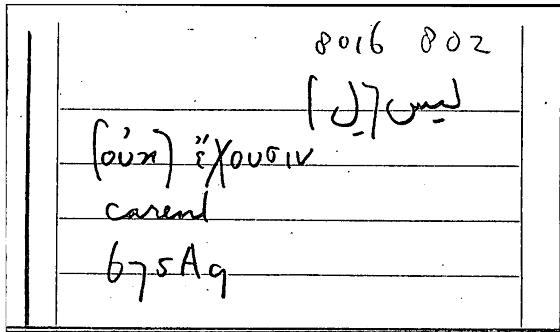 8016 802
ليس [ل]
(οὐκ) ἔχουσιν
carend
675A9